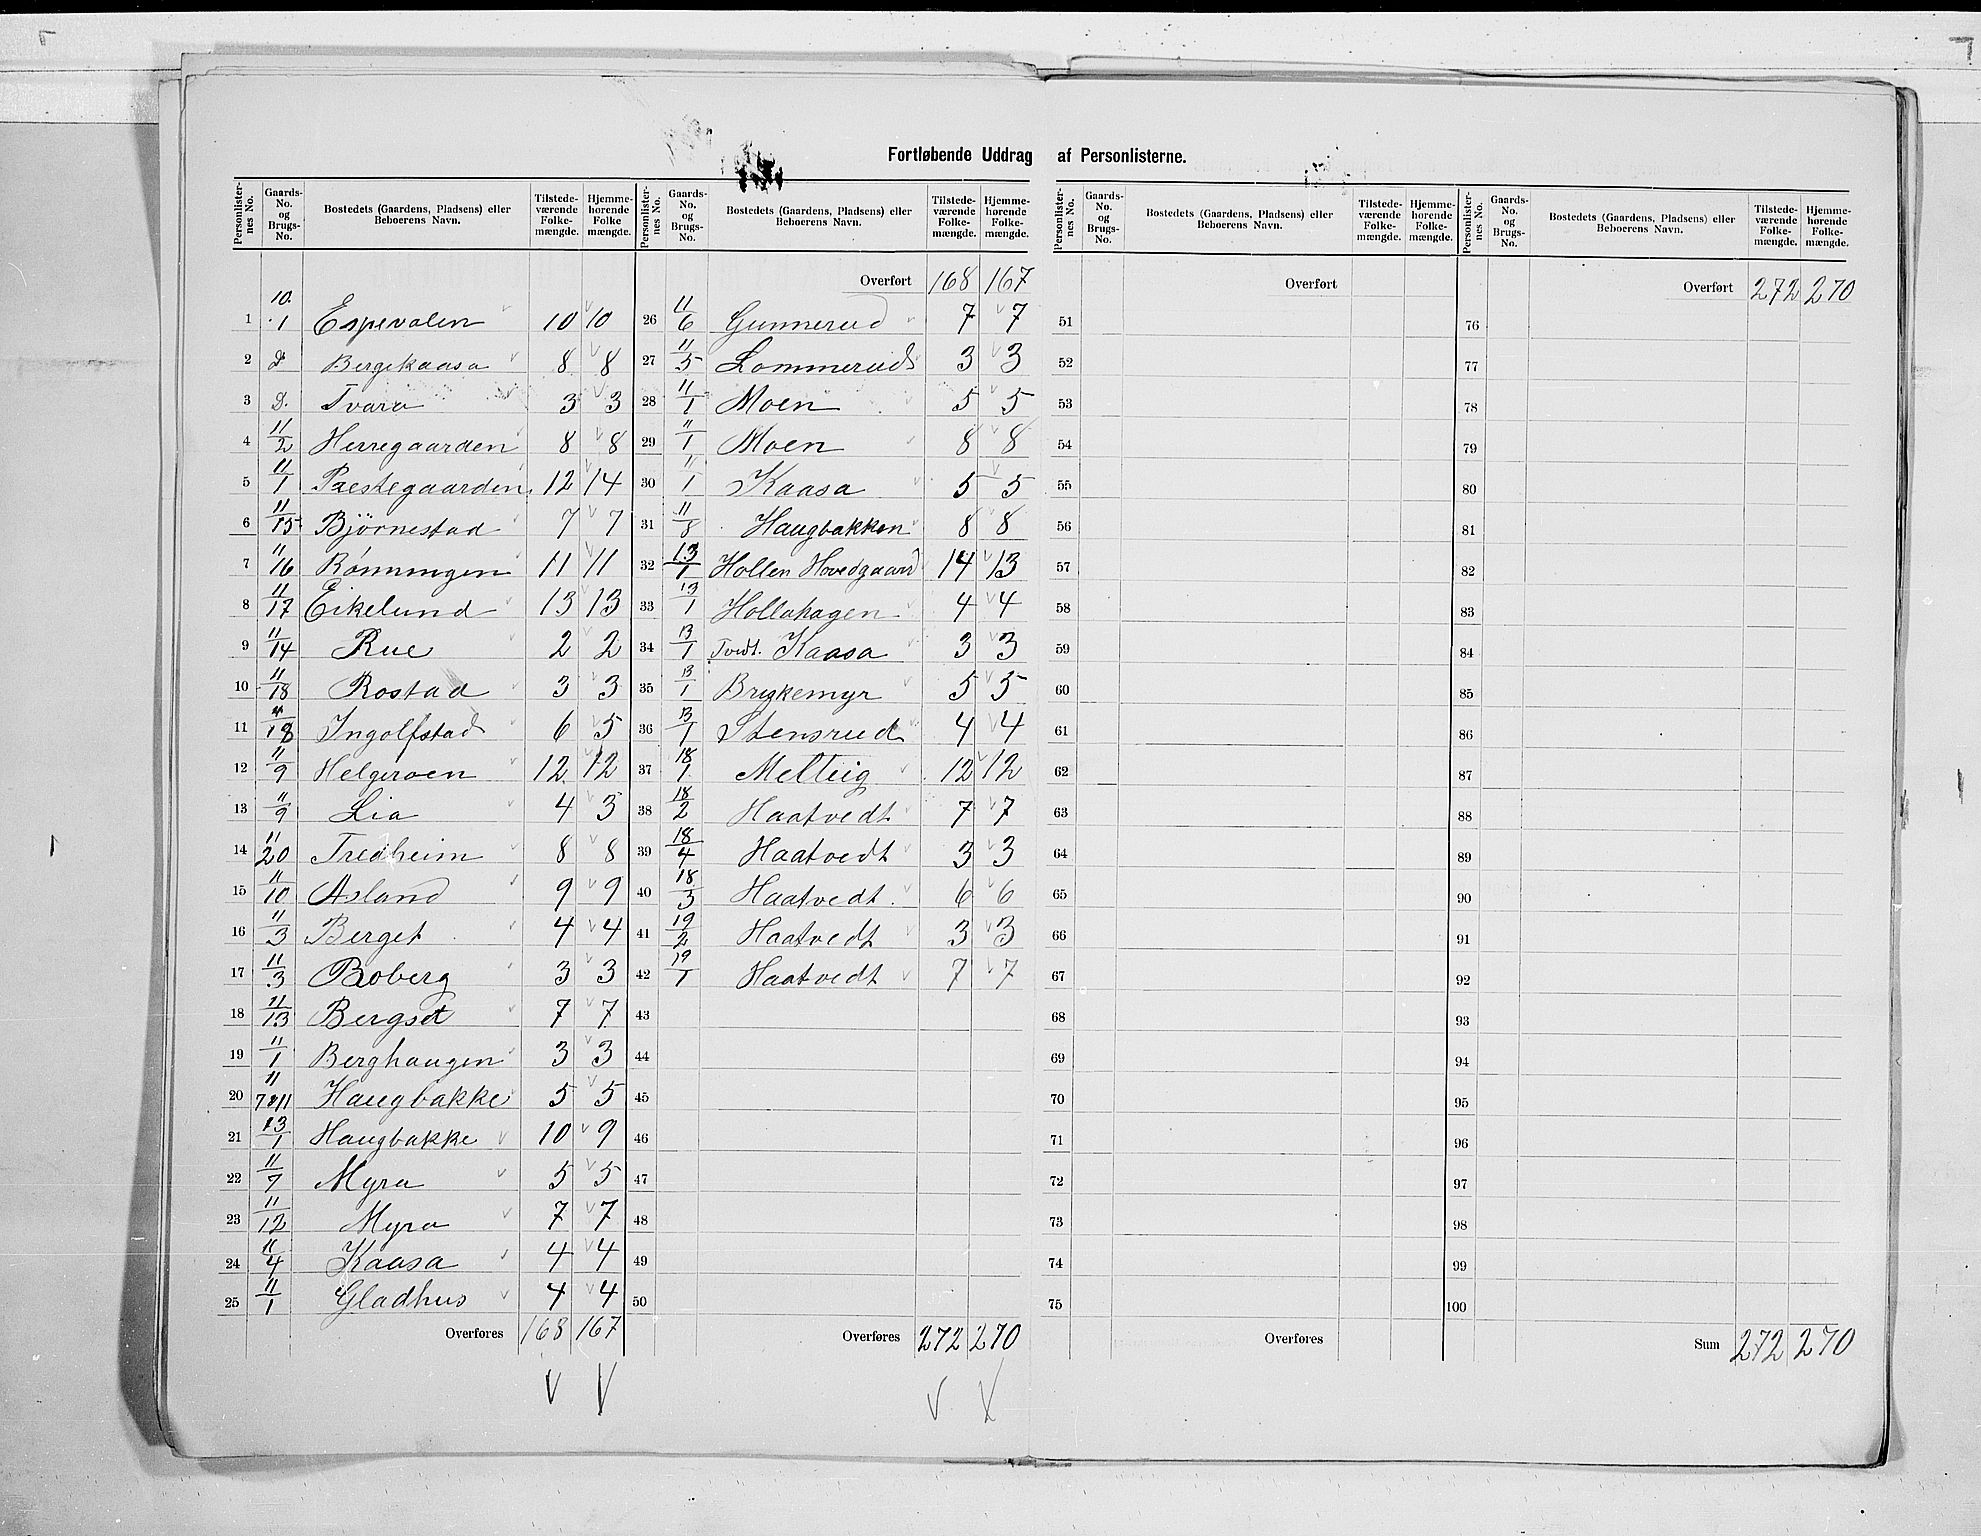 Fortløbende Uddrag af Personlisterne.
Personlister-nes No. | Gaards-No. og Brugs-No. | Bostedets (Gaardens, Pladsens) eller Beboerens Navn. | Tilstede-værende Folke-mængde. | Hjemme-hørende Folke mængde.
Personlister-nes No. | Gaards-No. og Brugs-No. | Bostedets (Gaardens, Pladsens) eller Beboerens Navn. | Tilstede-værende Folke-mængde. | Hjemme-hørende Folke-mængde.
Personlister-nes No. | Gaards-No. og Brugs-No. | Bostedets (Gaardens, Pladsens) eller Beboerens Navn. | Tilstede-værende Folke-mængde. | Hjemme-hørende Folke-mængde.
Personlister-nes No. | Gaards-No. og Brugs-No. | Bostedets (Gaardens, Pladsens) eller Beboerens Navn. | Tilstede-værende Folke-mængde. | Hjemme-hørende Folke-mængde.
1 10/1 Espevalen 10 10
2 D Bergekaasa 8 8
3 D. Tvara 3 3
4 11/2 Herregaarden 8 8
5 11/1 Præstegaarden 12 14
6 11/15 Bjørnestad 7 7
7 11/16 Rønningen 11 11
8 11/17 Eikelund 13 13
9 11/14 Rue 2 2
10 11/18 Rostad 3 3
11 11/18 Ingolfstad 6 5
12 11/9 Helgeroen 12 12
13 11/9 Lia 4 3
14 11/20 Fredheim 8 8
15 11/10 Asland 9 9
16 11/3 Berget 4 4
17 11/3 Boberg 3 3
18 11/13 Bergset 7 7
19 11/1 Berghaugen 3 3
20 11/7 & 11 Haugbakke 5 5
21 13/1 Haugbakke 10 9
22 11/7 Myra 5 5
23 11/12 Myra 7 7
24 11/4 Kaasa 4 4
25 11/1 Gladhus 4 4
Overføres 168 167
Overført 168 167
26 11/6 Gunnerud 7 7
27 11/5 Lommerud 3 3
28 11/1 Moen 5 5
29 11/1 Moen 8 8
30 11/1 Kaasa 5 5
31 11/8 Haugbakken 8 8
32 13/1 Hollen Hovedgaard 14 13
33 13/1 Hollahagen 4 4
34 13/1 Tvedt. Kaasa 3 3
35 13/1 Brykemyr 5 5
36 13/1 Stensrud 4 4
37 18/1 Melteig 12 12
38 18/2 Haatvedt 7 7
39 18/4 Haatvedt 3 3
40 18/3 Haatvedt 6 6
41 19/2 Haatvedt 3 3
42 19/1 Haatvedt 7 7
43
44
45
46
47
48
49
50
Overføres 272 270
Overført
51
52
53
54
55
56
57
58
59
60
61
62
63
64
65
66
67
68
69
70
71
72
73
74
75
Overføres
Overført 272 270
76
77
78
79
80
81
82
83
84
85
86
87
88
89
90
91
92
93
94
95
96
97
98
99
100
Sum 272 270